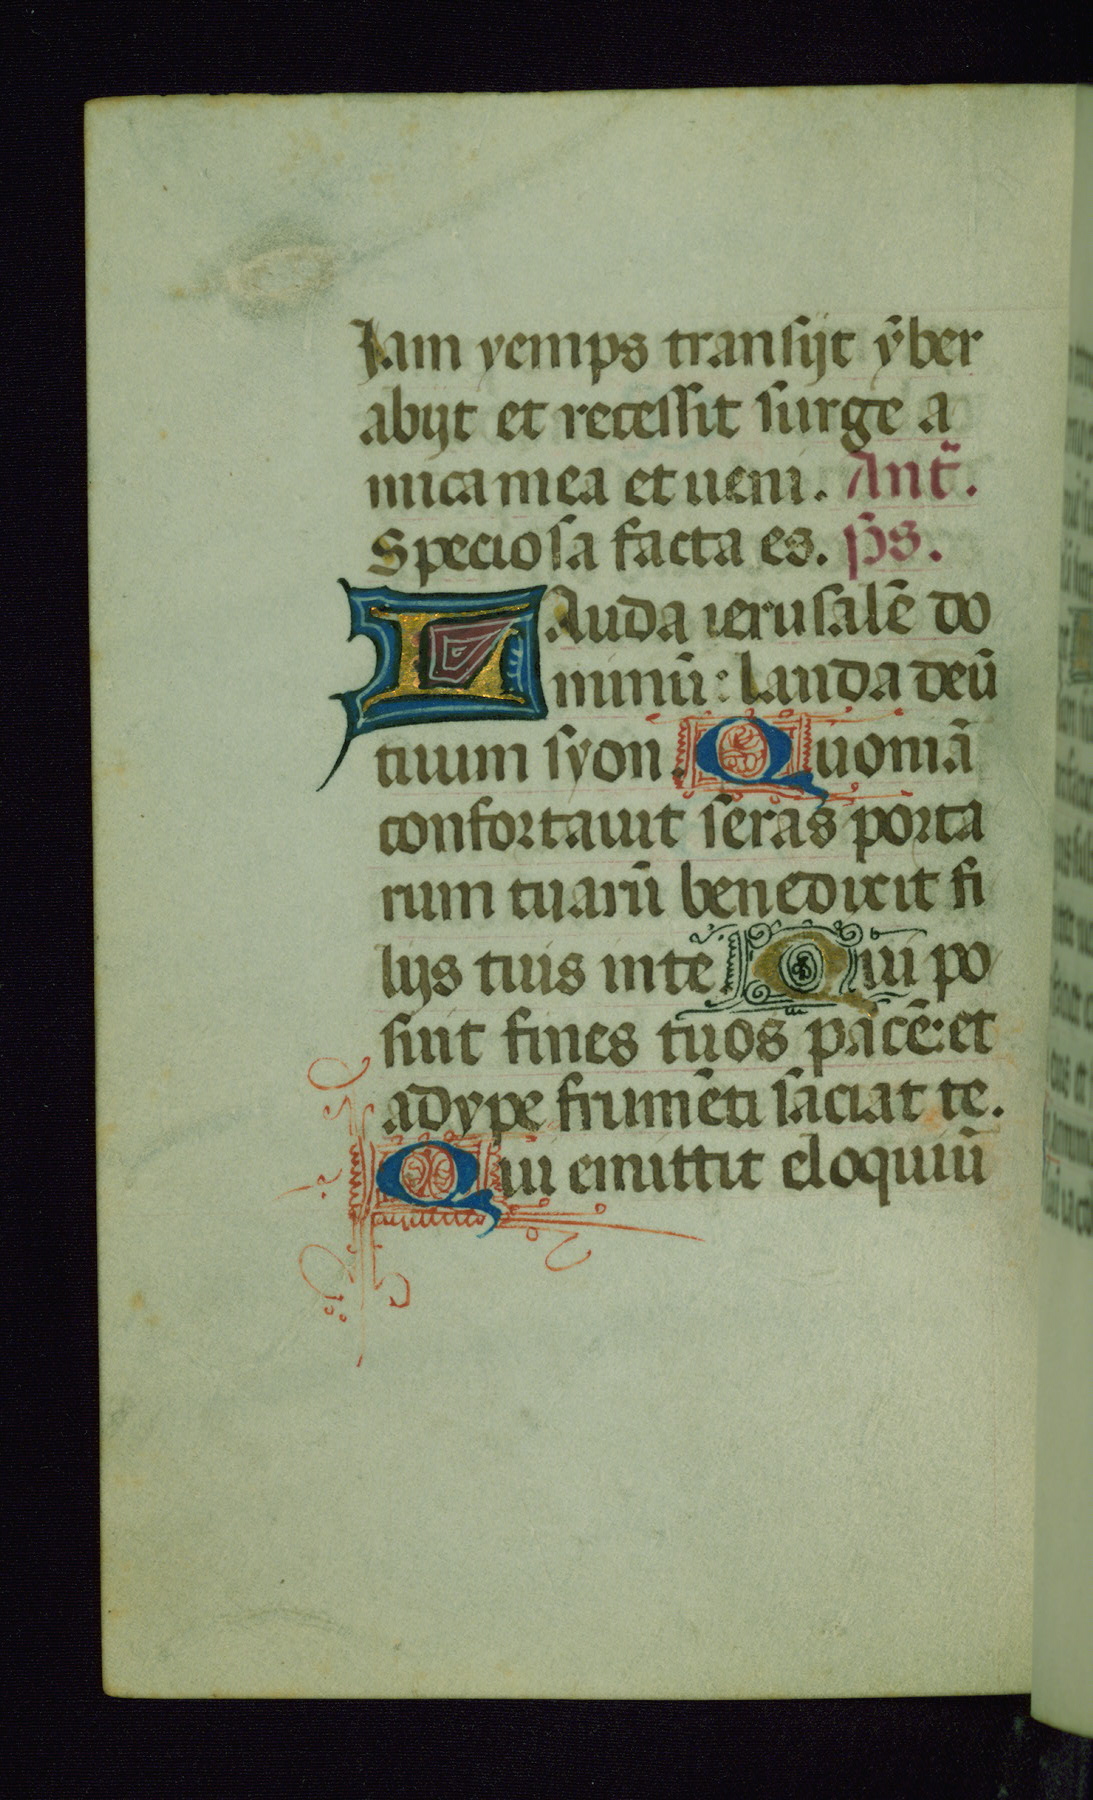 Jam yemps transijt ẏ̄ber
abijt et recessit surge a
mica mea et ueni. Ant̃.
Speciosa facta es. p̄s.
LAuda ierusalē do
minū: lauda deū
tuum syon. Quoniā
confortauit seras porta
rum tuarū benedixit fi
lijs tuis in te. Qui po
suit fines tuos pacē: et
adype frumēti saciat te.
Qui emittit eloquiū